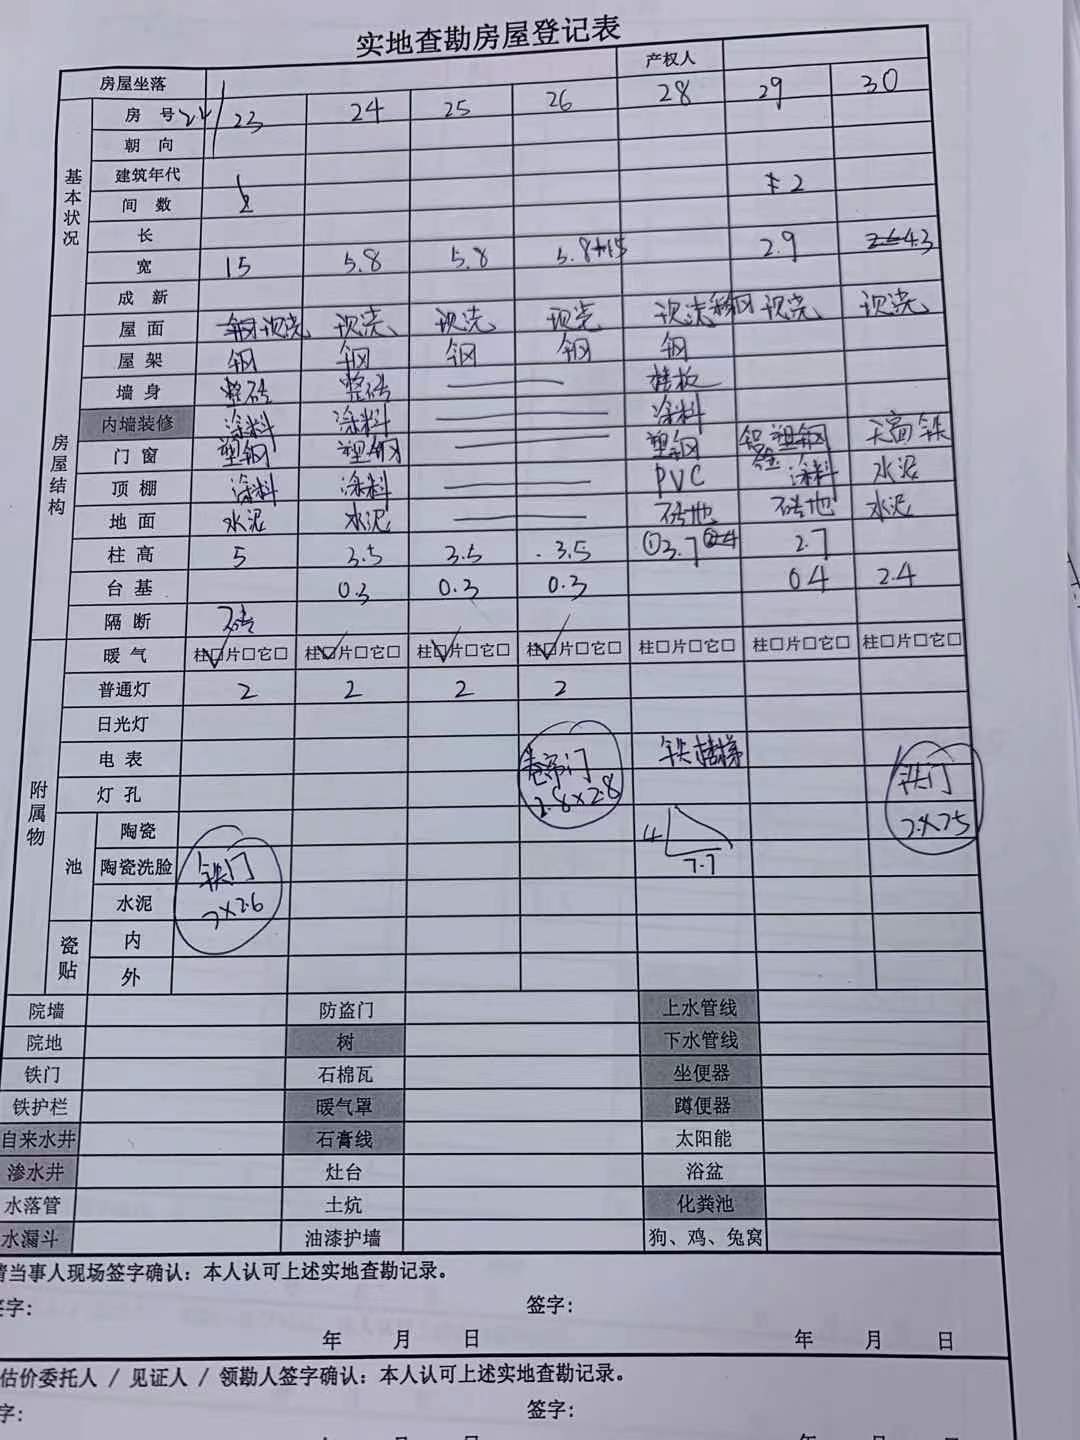 实地查勘房屋登记表
房屋坐落 产权人
基本状况
房号 24 23 24 25 26 28 29 30
朝向
建筑年代
间数 2 2
长
宽 15 5.8 5.8 5.8+15 2.9 4.3
成新
房屋结构
屋面 钢 现浇 现浇 现浇 现浇 现浇 彩钢 现浇 现浇
屋架 钢 钢 钢 钢 钢
墙身 整砖 整砖 楼板
内墙装修 涂料 涂料 涂料
门窗 塑钢 塑钢 塑钢 铝合 塑钢 天窗 铁
顶棚 涂料 涂料 PVC 涂料 水泥
地面 水泥 水泥 砖地 砖地 水泥
柱高 5 3.5 3.5 3.5 ①3.7 2.7
台基 0.3 0.3 0.3 0.4 2.4
隔断 砖
附属物
暖气 柱☑片□它□ 柱☑片□它□ 柱☑片□它□ 柱☑片□它□ 柱□片□它□ 柱□片□它□ 柱□片□它□
普通灯 2 2 2 2
日光灯
电表 卷帘门 铁楼梯
灯孔 2.8×2.8 铁门
池
陶瓷 4 7.7
陶瓷洗脸 铁门
水泥 2×2.6
瓷贴
内
外
院墙 防盗门 上水管线
院地 树 下水管线
铁门 石棉瓦 坐便器
铁护栏 暖气罩 蹲便器
自来水井 石膏线 太阳能
渗水井 灶台 浴盆
水落管 土炕 化粪池
水漏斗 油漆护墙 狗、鸡、兔窝
请当事人现场签字确认：本人认可上述实地查勘记录。
签字： 签字：
年 月 日 年 月 日
估价委托人 / 见证人 / 领勘人签字确认：本人认可上述实地查勘记录。
字： 签字：
年 月 日 年 月 日